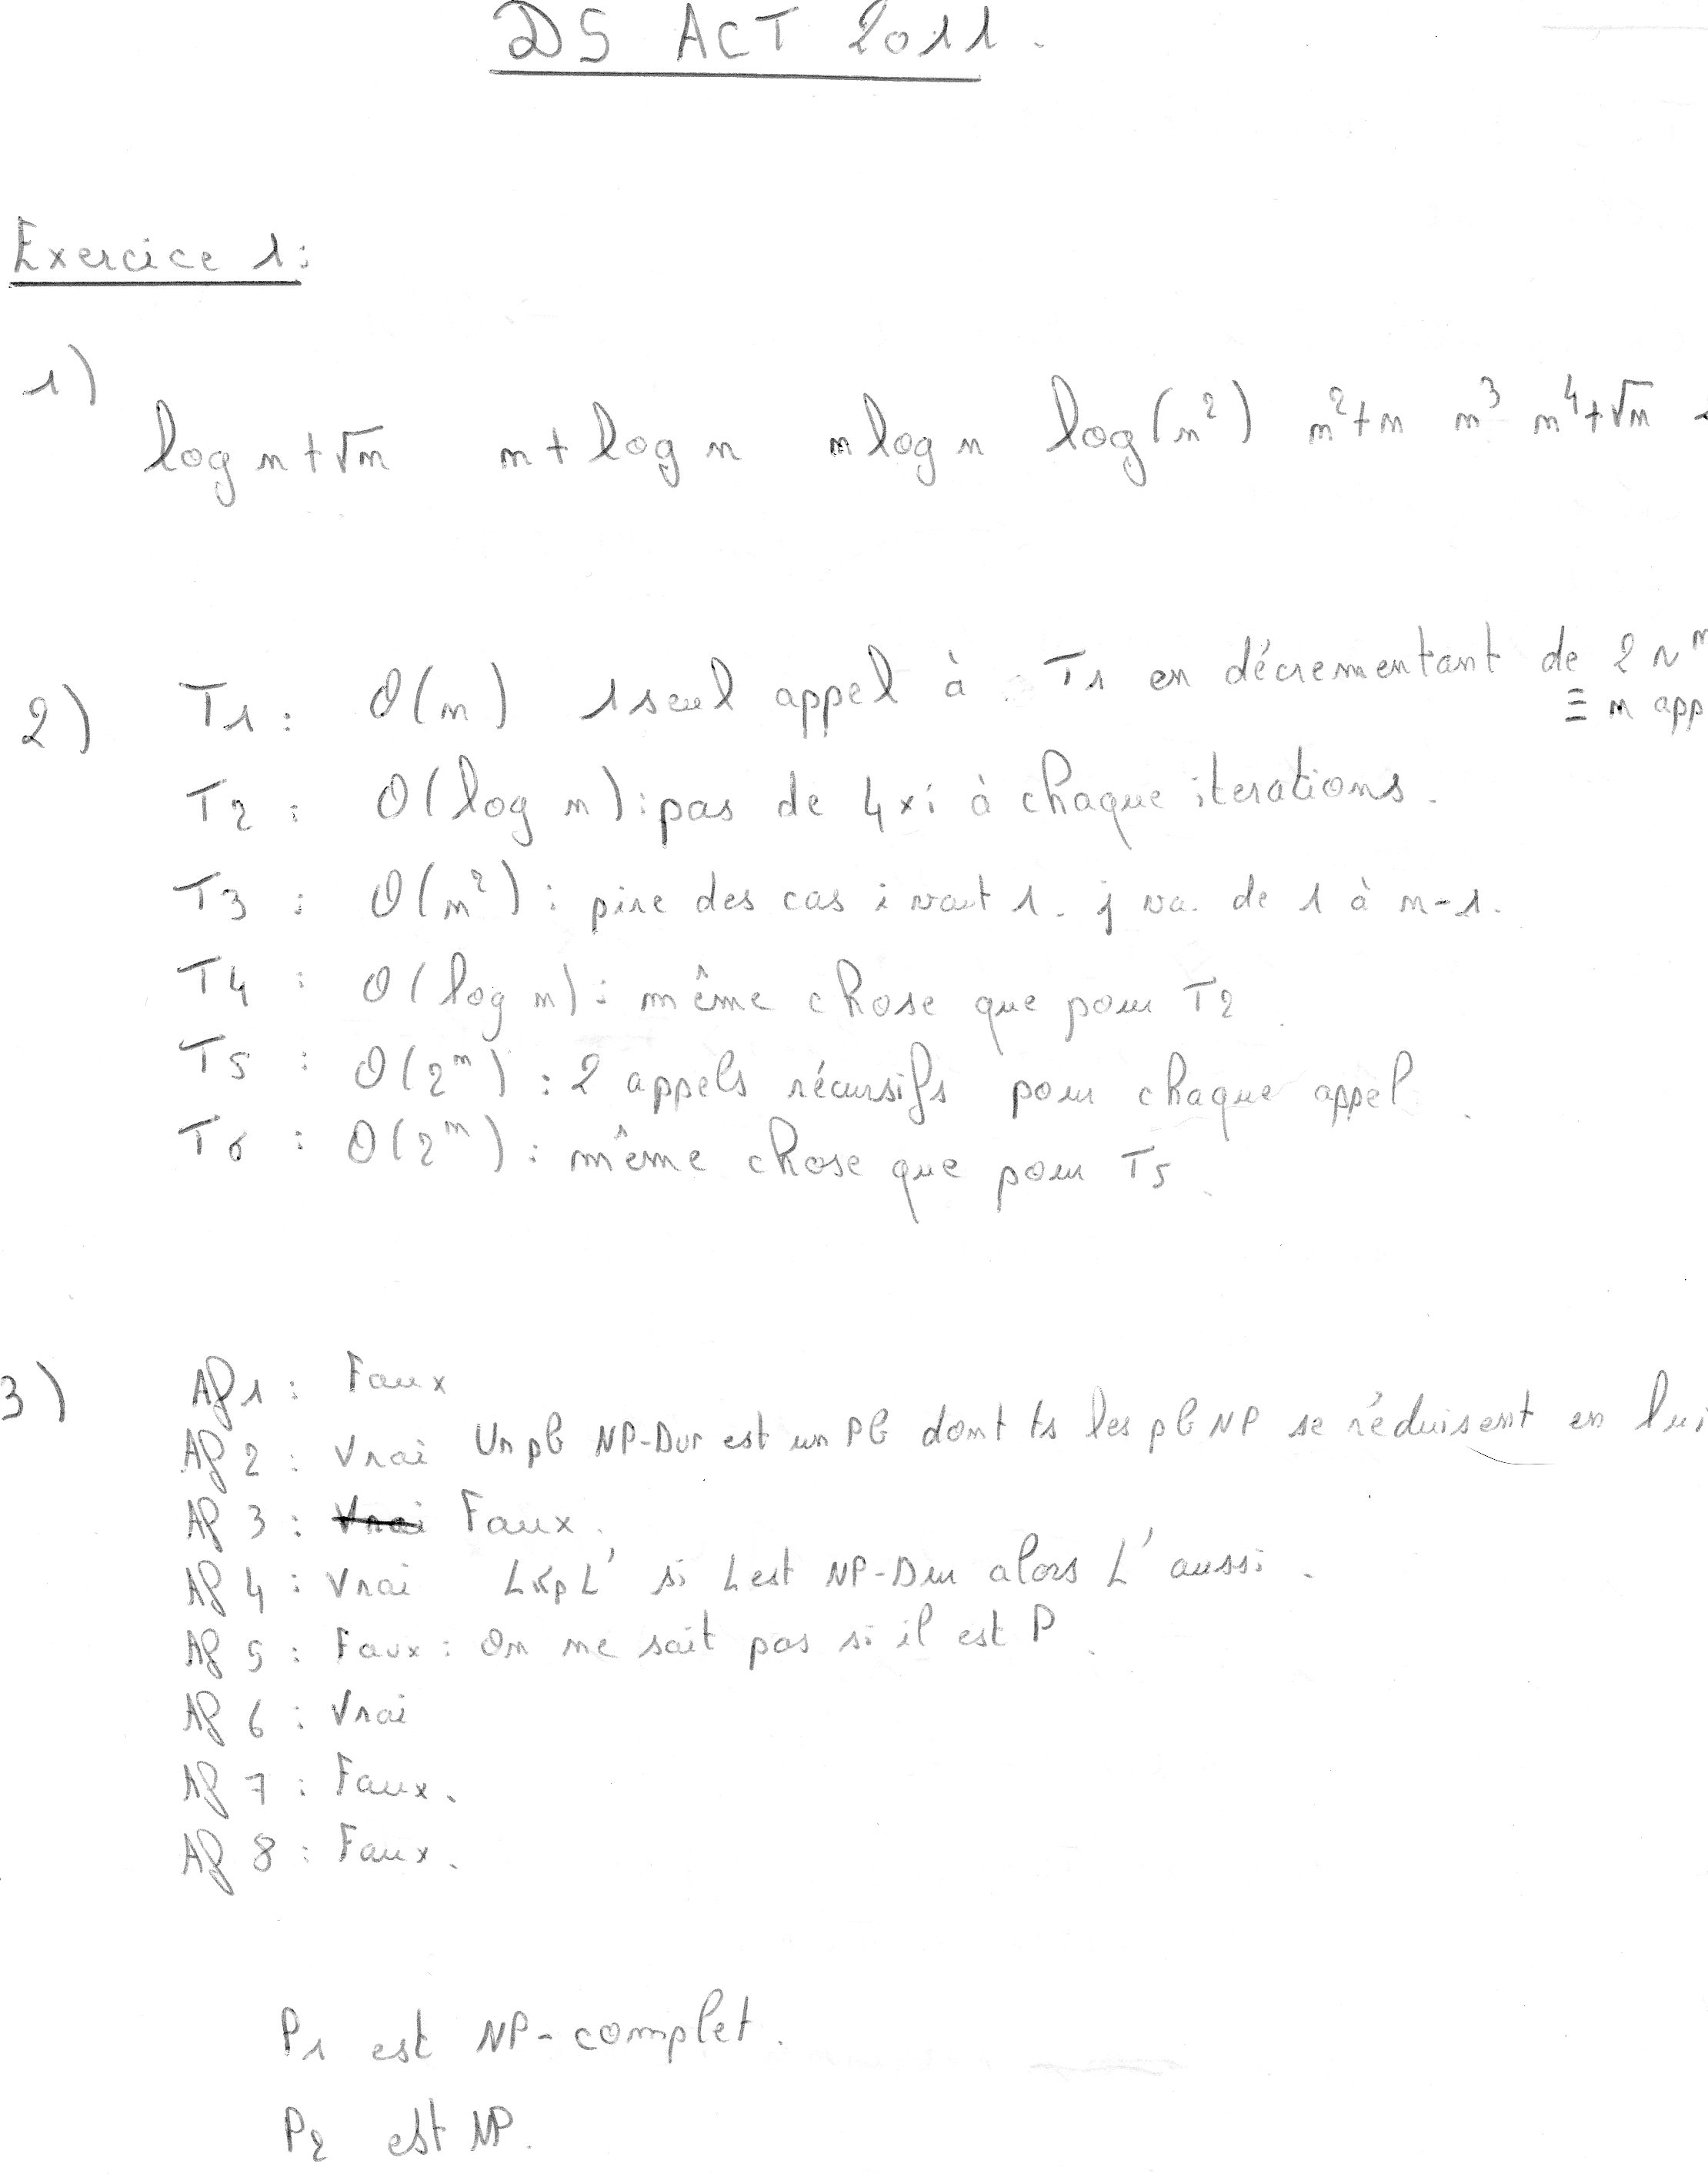 DS ACT 2011.
Exercice 1:
1)
log n + √n   n + log n   n log n   log(n²)   n² + n   n³   n⁴ + √n
2) T1 : O(n) 1 seul appel à T1 en décrementant de 2 ~ n
≡ n app
T2 : O(log n) : pas de 4×i à chaque iterations.
T3 : O(n²) : pire des cas i vaut 1. j va. de 1 à n-1.
T4 : O(log n) : même chose que pour T2.
T5 : O(2ⁿ) : 2 appels récursifs pour chaque appel.
T6 : O(2ⁿ) : même chose que pour T5.
3) Af 1 : Faux
Af 2 : Vrai Un pb NP-Dur est un Pb dont ts les pb NP se réduisent en lui
Af 3 : Vrai Faux.
Af 4 : Vrai L≤pL' si L est NP-Dur alors L' aussi.
Af 5 : Faux : On ne sait pas si il est P.
Af 6 : Vrai
Af 7 : Faux.
Af 8 : Faux.
P1 est NP-complet.
P2 est NP.